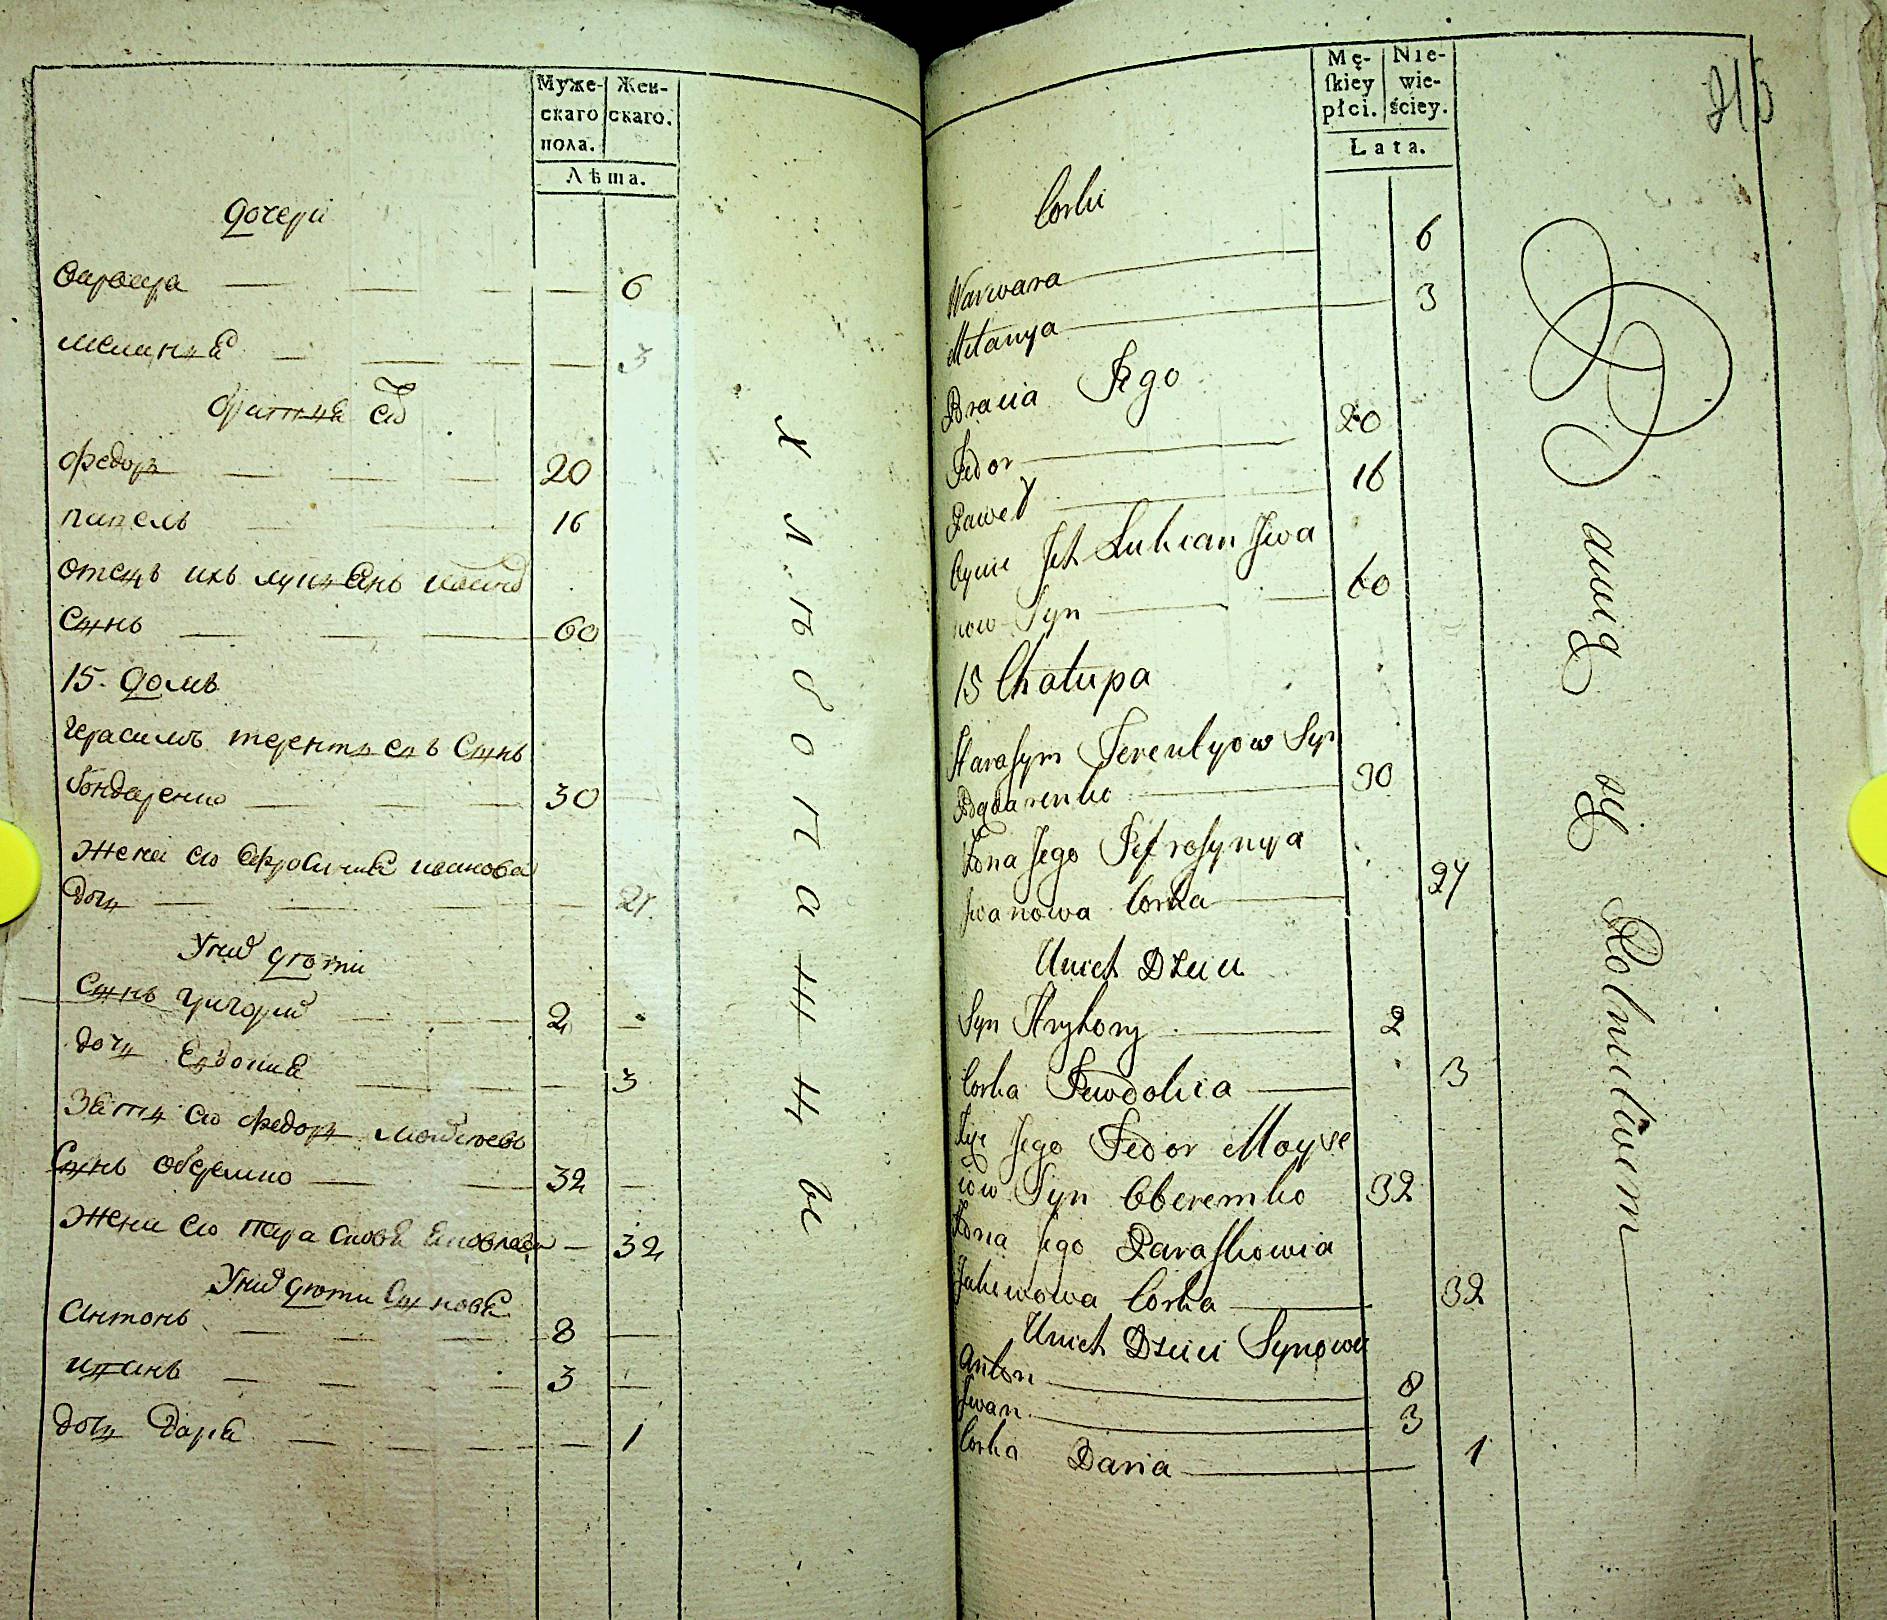 Муже-
скаго
пола.
Жен-
скаго.
Лѣта.
дочери
варвара 6
мелания 3
братия его
федоръ 20
павелъ 16
отецъ ихъ лукианъ иванов
сынъ 60
15. домъ
герасимъ терентиевъ сынъ
бондаренко 30
жена его ефросиния иванова
дочь 27
У них дети
сынъ григорий 2
дочь Евдокия 3
зять его федоръ мойсеевъ
сынъ оберемко 32
жена его парасковия яковлева 32
У них дети сыновя
антонъ 8
иванъ 3
дочь дария 1
хлѣбопашцы
Mę-
ſkiey
płci.
Nie-
wie-
ściey.
Lata.
215
Corki
Warwara 6
Melanya 3
Bracia Jego
Fedor 20
Paweł 16
Oycie Jch Lukian Jwa
now Syn 60
15 Chałupa
Harasym Terentyow Syn
Bądarenko 30
Żona Jego Jefrosynya
Jwanowa Corka 27
Unich Dzieci
Syn Hryhory 2
Corka Jewdokia 3
Zięć Jego Fedor Moyse
iow Syn Oberemko 32
Żona Jego Paraskowia
Jakowowa Corka 32
Unich Dzieci Synowie
Anton 8
Jwan 3
Corka Daria 1
Bawią się Rolnictwem